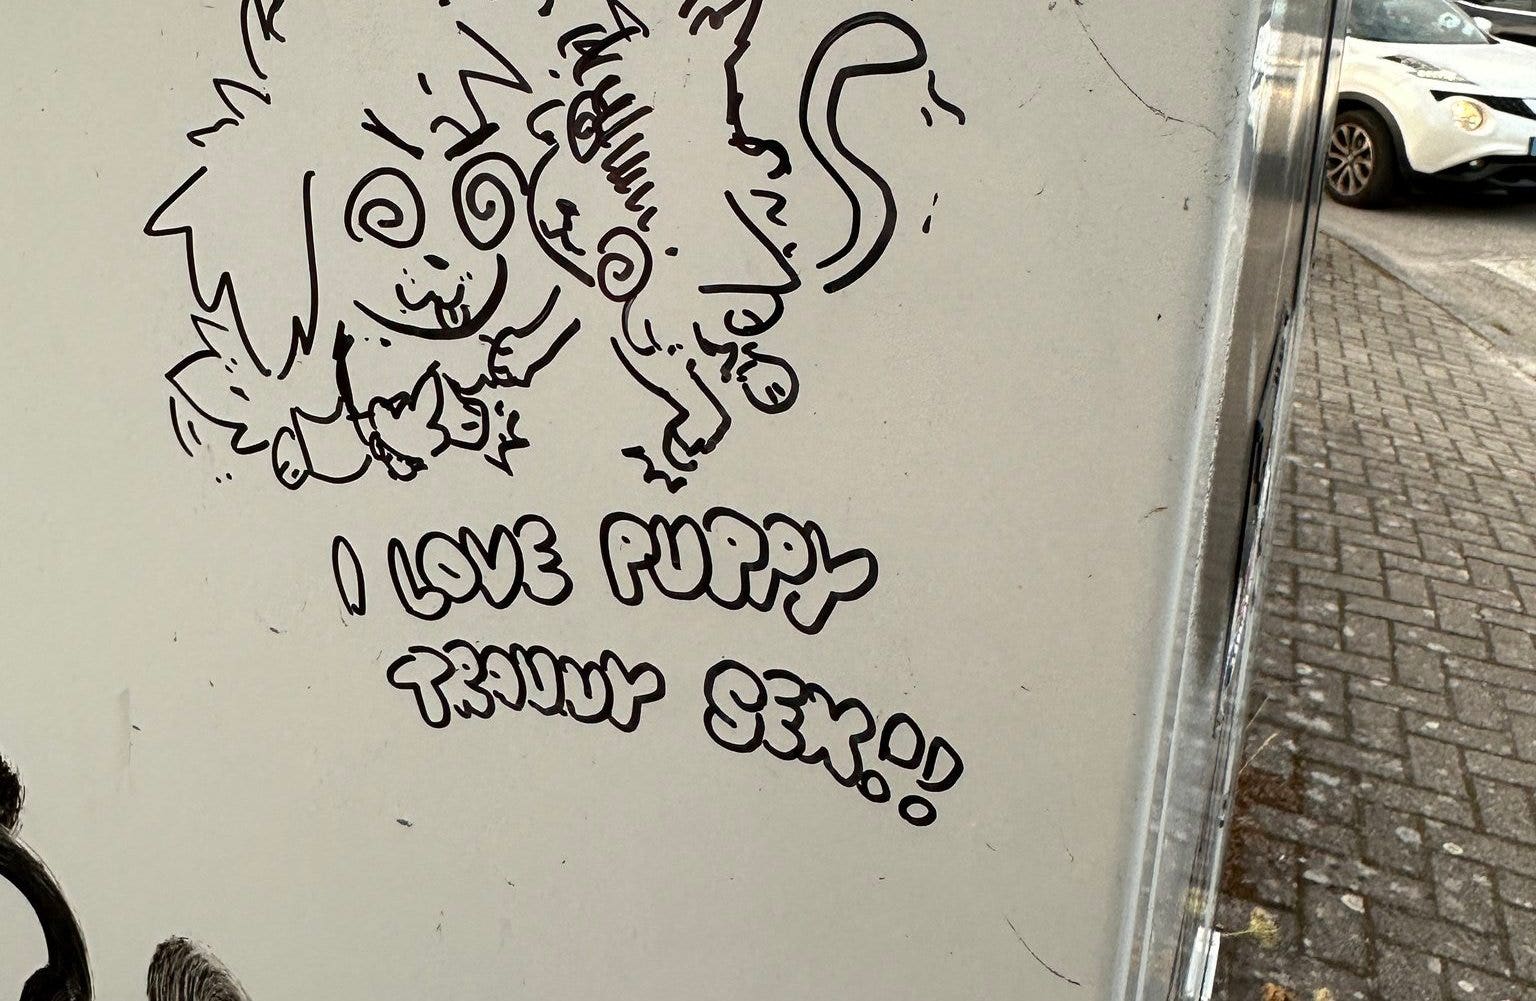 I LOVE PUPPY
TRANNY SEX!!